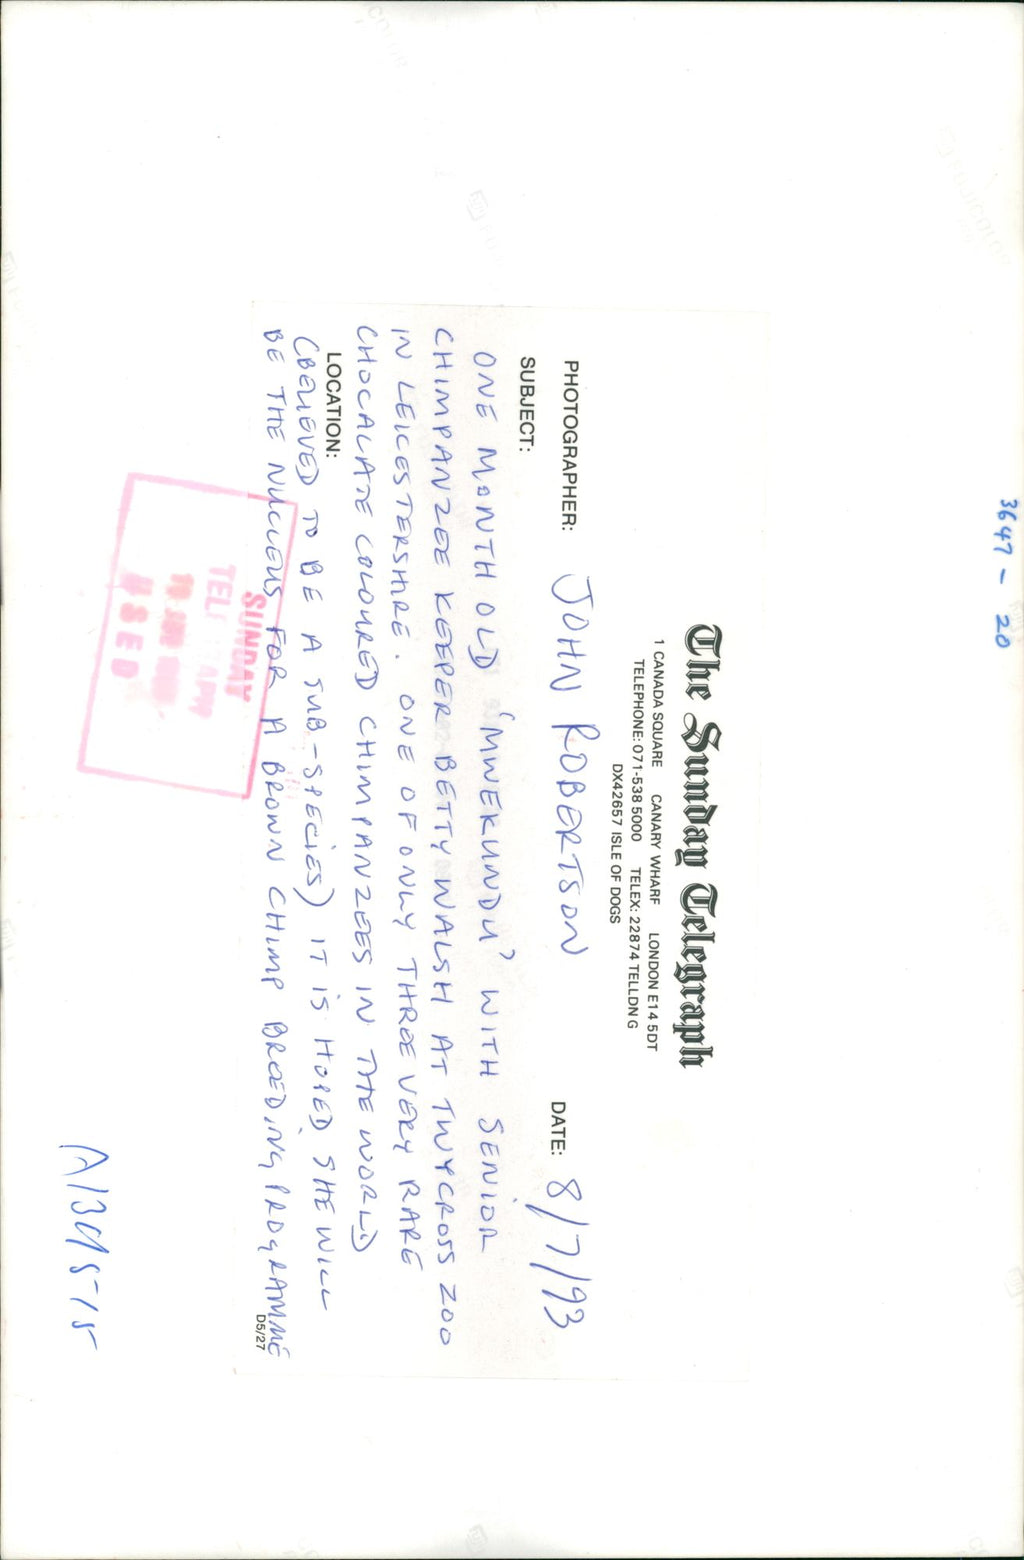 3647 - 20
The Sunday Telegraph
1 CANADA SQUARE CANARY WHARF LONDON E14 5DT
TELEPHONE: 071-538 5000 TELEX: 22874 TELLDN G
DX42657 ISLE OF DOGS
PHOTOGRAPHER: JOHN ROBERTSON DATE: 8/7/93
SUBJECT:
ONE MONTH OLD 'MWEKUNDU' WITH SENIOR
CHIMPANZEE KEEPER BETTY WALSH AT TWYCROSS ZOO
IN LEICESTERSHIRE. ONE OF ONLY THREE VERY RARE
CHOCALATE COLOURED CHIMPANZEES IN THE WORLD
LOCATION:
(BELIEVED TO BE A SUB-SPECIES) IT IS HOPED SHE WILL
BE THE NUCLEUS FOR A BROWN CHIMP BREEDING PROGRAMME
D5/27
SUNDAY
USED